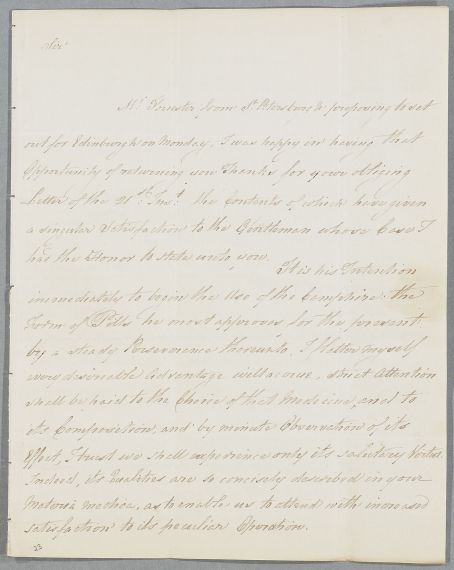 Sir
Mr. from St. Petersburgh proposing to set
out for Edinburgh on Monday, I was happy in having that
Opportunity of returning you Thanks for your obliging
Letter of the 21st. Inst. the Contents of which have given
a singular Satisfaction to the Gentleman whose Case I
had the Honor to state unto you.
It is his Intention
immediately to begin the Use of the Camphire: the
Form of Pills he most approves for the present
by a steady Perseverance thereunto, I flatter myself
every desireable Advantage will accrue, strict Attention
shall be paid to the Choice of that Medicine, and to
its Composition, and by minute Observation of its
Effect, I trust we shall experience only its salutary Virtue.
Indeed, its Qualities are so concisely described in your
Materia medica, as to enable us to attend with increased
satisfaction to its peculiar Operation.
23